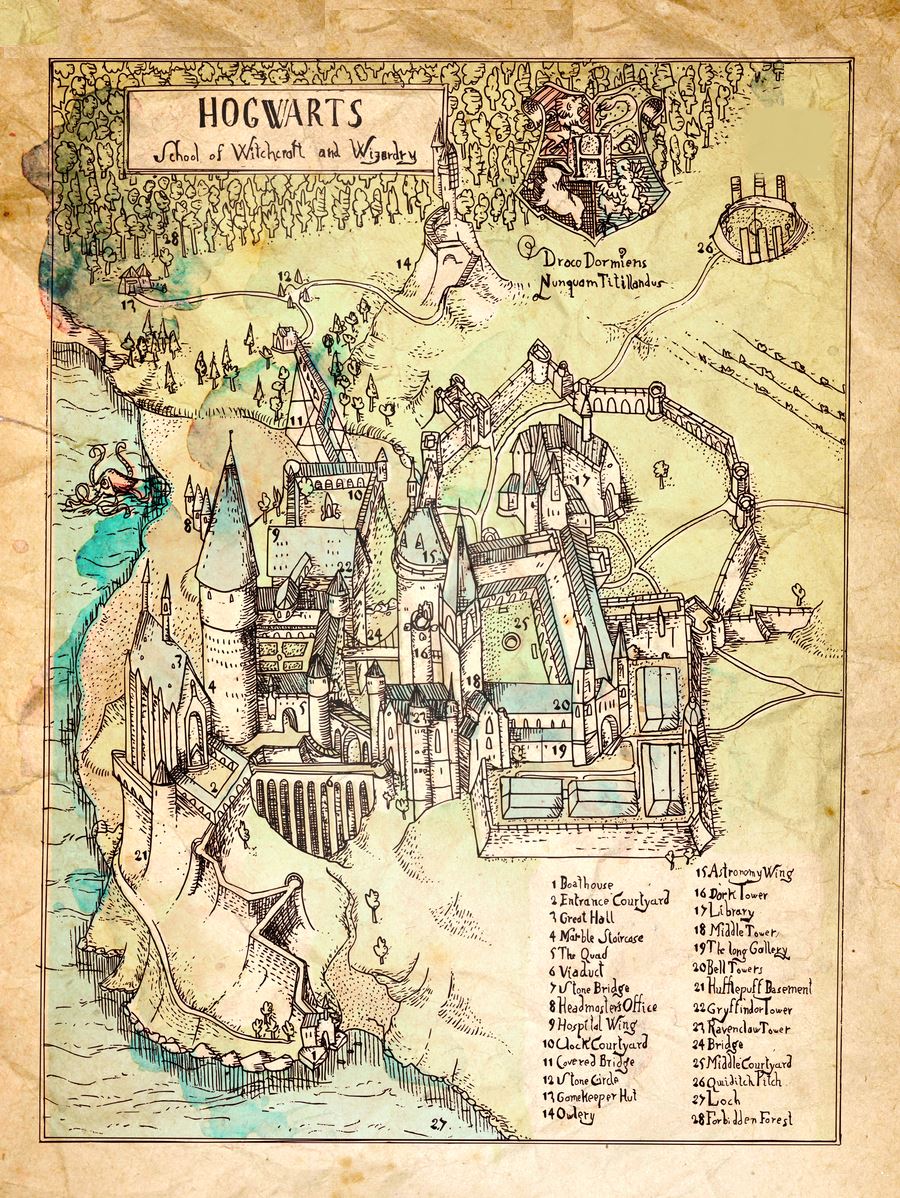 HOGWARTS
School of Witchcraft and Wizardry
H
Draco Dormiens
Nunquam Titillandus
28
26
14
12
13
11
17
10
8
9
15
22
25
24
16
3
4
18
5
20
23
19
2
21
27
1 Boathouse
2 Entrance Courtyard
3 Great Hall
4 Marble Staircase
5 The Quad
6 Viaduct
7 Stone Bridge
8 Headmasters Office
9 Hospital Wing
10 Clock Courtyard
11 Covered Bridge
12 Stone Circle
13 Gamekeeper Hut
14 Owlery
15 Astronomy Wing
16 Dark Tower
17 Library
18 Middle Tower
19 The long Gallery
20 Bell Towers
21 Hufflepuff Basement
22 Gryffindor Tower
23 Ravenclaw Tower
24 Bridge
25 Middle Courtyard
26 Quiditch Pitch
27 Loch
28 Forbidden Forest